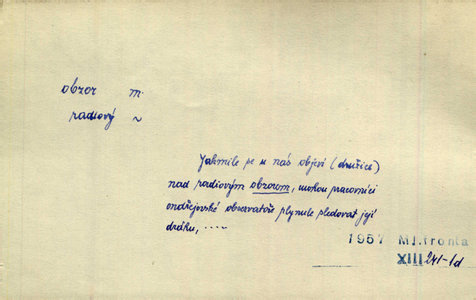 obzor m.
radiový ~
Jakmile se u nás objeví (družice)
nad radiovým obzorem, mohou pracovníci
ondřejovské observatoře plynule sledovat její
dráhu, ....
1957 Ml.fronta
XIII 241-1d